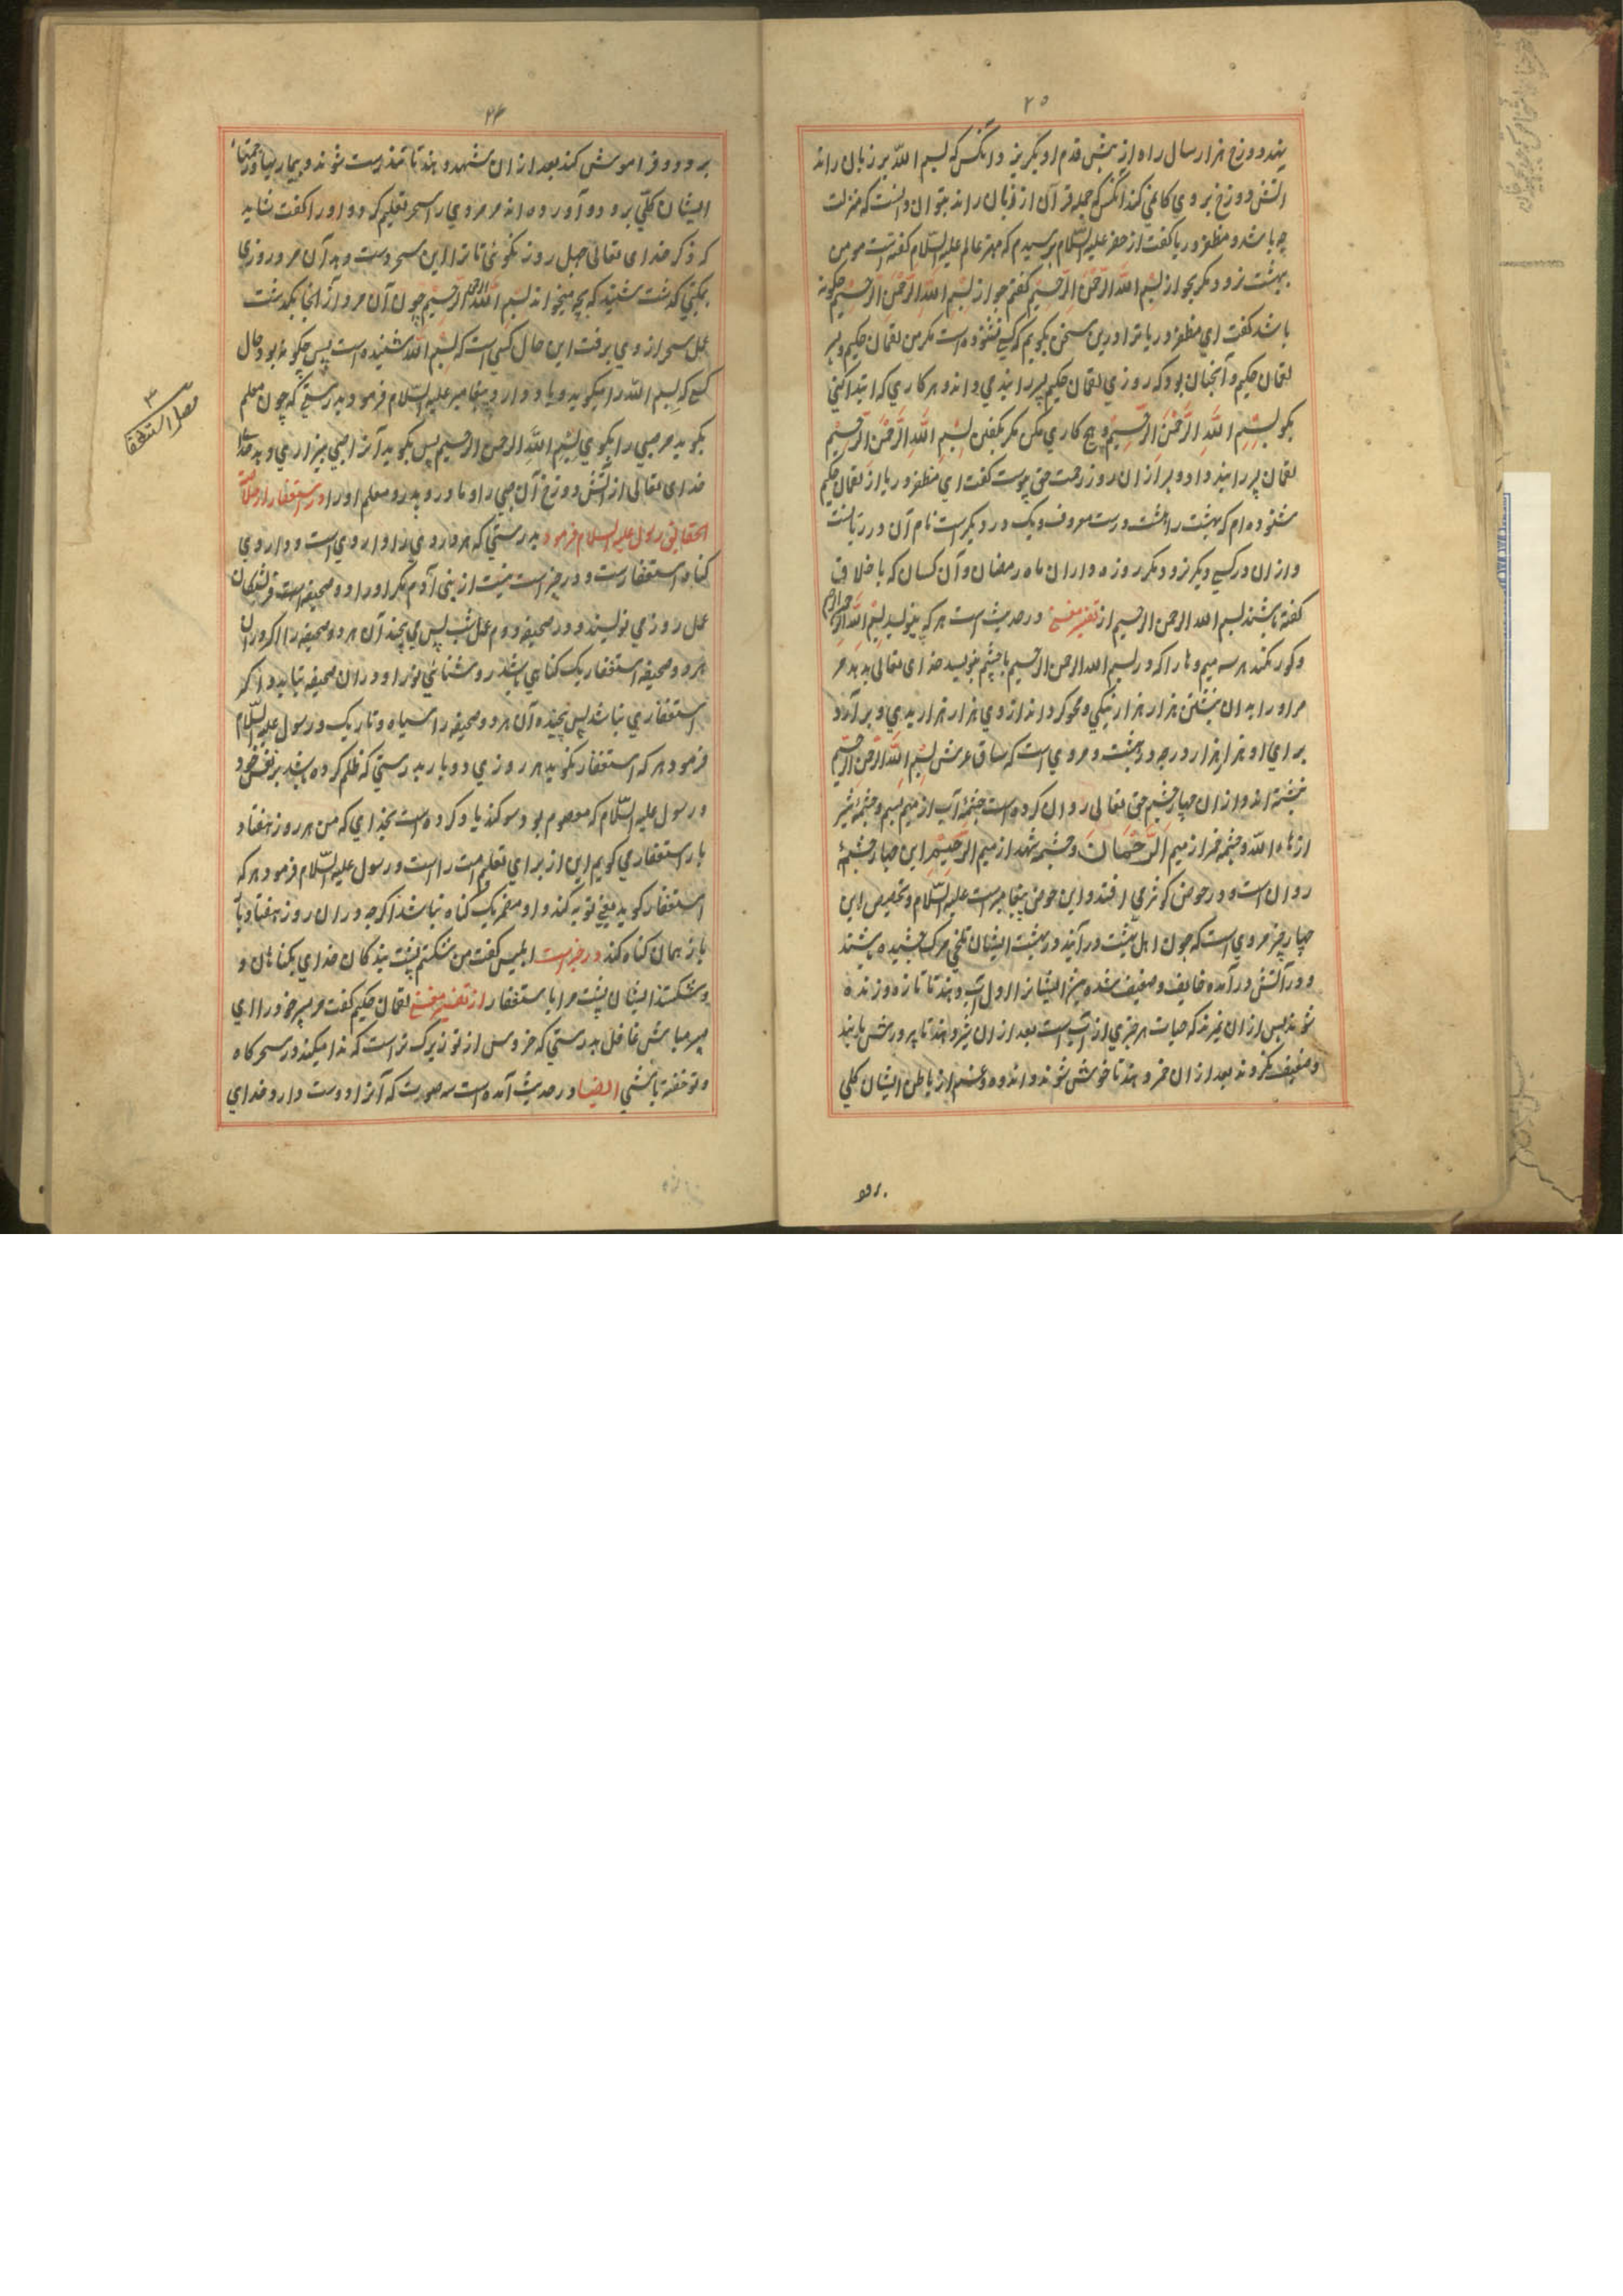 ۲۵
نهد دوزخ هزار سال راه از پیش قدم او بگریزد و انکس که بسم الله بر زبان راند
اتش دوزخ بروی کار نمی کند انکس که جمله قرآن از زبان راند بتوان دانست که منزلت
چه باشد و مظفر وریا کفت از خضر علیه السلام پرسیدم که مهتر عالم علیه السلام کفته است مومن
بهشت نرود مکر بجواز بسم الله الرحمن الرحیم کفتم جواز بسم الله الرحمن الرحیم چکونه
باشد کفت ای مظفر وریا ترا درین سخن بکویم که کسی نشنوده است مکر من لقمان حکیم و پسر
لقمان حکیم و آنچنان بود که روزی لقمان حکیم پسر را پند می داد و هر کاری که ابتدا کنی
بکو بسم الله الرحمن الرحیم و هیچ کاری مکن مکر بکفتن بسم الله الرحمن الرحیم
لقمان پسر را پند داد و بعد از ان روز رحمت حق پیوست کفت ای مظفر وریا از لقمان حکیم
شنوده ام که بهشت را هشت در ست معروف و یک در دیکر است نام آن در ریانست
و از ان در کسی دیکر نرود مکر روزه داران ماه رمضان و آن کسان که باخلاص
کفته باشند بسم الله الرحمن الرحیم از تفسیر مغنی در حدیث است هر که بنویسد بسم الله الرحمن الرحیم
و کور نکند هر سه میم و ها را که در بسم الله الرحمن الرحیم با چشم بنویسد خدای تعالی بدهد مر
مر او را بدان نبشتن هزار هزار نیکی و محو کرداند از وی هزار هزار بدی و بر آرد
برای او هزار هزار درجه در بهشت و مروی است که ساق عرش بسم الله الرحمن الرحیم
نبشته اند و از ان چهار چشمه حق تعالی روان کرده است چشمهٔ آب از میم بسم و چشمهٔ شیر
از هاء الله و چشمه خمر از میم الرحمان و چشمه شهد از میم الرحیم این چهار چشمهٔ
روان است و در حوض کوثر می افتد و این حوض پیغامبر ست علیه السلام و تخصیص این
چهار چیز مروی است که چون اهل بهشت در آیند در بهشت ایشان تلخی مرک چشیده باشند
و در آتش در آمده خایف و ضعیف شده پس ایشانرا اول آب دهند تا تازه و زنده
شوند پس از ان نمیرند که حیات هر چیزی از آب است بعد از ان شیر دهند تا پرورش یابند
و ضعیف نکردند بعد از ان خمر دهند تا خوش شوند و اندوه و غم از باطن ایشان کلی
برود
۲۶
برود و فراموش کنند بعد از ان شهد دهند تا تندرست شوند و بیماریها و زحمتها
ایشان کلی برود و آورده اند مر مردی را سحر تعلیم کردند و او را کفت شاید
که ذکر خدای تعالی چهل روز نکوئی تا ترا این سحر دست دهد آن مرد روزی
بمکتبی کذشت شنید که بچه میخواند بسم الله الرحمن الرحیم چون آن مرد از انجا بکذشت
عمل سحر از وی برفت این حال کسی است که بسم الله شنیده است پس چکونه بود حال
کسی که بسم الله را میکوید و یاد دارد و پیغامبر علیه السلام فرمود بدرستی که چون معلم
بکوید مر صبی را بکوی بسم الله الرحمن الرحیم پس بکوید آنرا صبی بیزاری دهد
خدای تعالی از آتش دوزخ آن صبی را و مادر و پدر و معلم او را در استغفار از خلاصة
الحقایق رسول علیه السلام فرمود بدرستی که هر دردی را داروی است و داروی
کناه استغفارست و در خبر است نیست از بنی آدم مکر او را دو صحیفه است فرشتکان
عمل روز می نویسند و در صحیفه دوم عمل شب پس می پیچند آن هر دو صحیفه را اکر در ان
هر دو صحیفه استغفار یک کناهی باشد روشنائی نور او در ان صحیفه بتابد و اکر
استغفاری نباشد پس پیچند آن هر دو صحیفه را سیاه و تاریک و رسول علیه السلام
فرمود هر که استغفار نکوید هر روزی دو بار بدرستی که ظلم کرده باشد بر نفس خود
و رسول علیه السلام که معصوم بود سوکند یاد کرده است بخدای که من هر روز هفتاد
بار استغفار می کویم این از برای تعلیم امت را است و رسول علیه السلام فرمود هر که
استغفار کوید یعنی توبه کند و او مصر بیک کناه نباشد اکرچه در ان روز هفتاد بار
باز همان کناه کند در خبر است ابلیس کفت من شکستم پشت بندکان خدای بکناهان و
و شکستند ایشان پشت مرا باستغفار از تفسیر مغنی لقمان حکیم کفت مر پسر خود را ای
پسر مباش غافل بدرستی که خروس از تو زیرک تر است که ندا میکند در سحرکاه
و تو خفته باشی ایضا در حدیث آمده است سه صورت که آنرا دوست دارد خدای